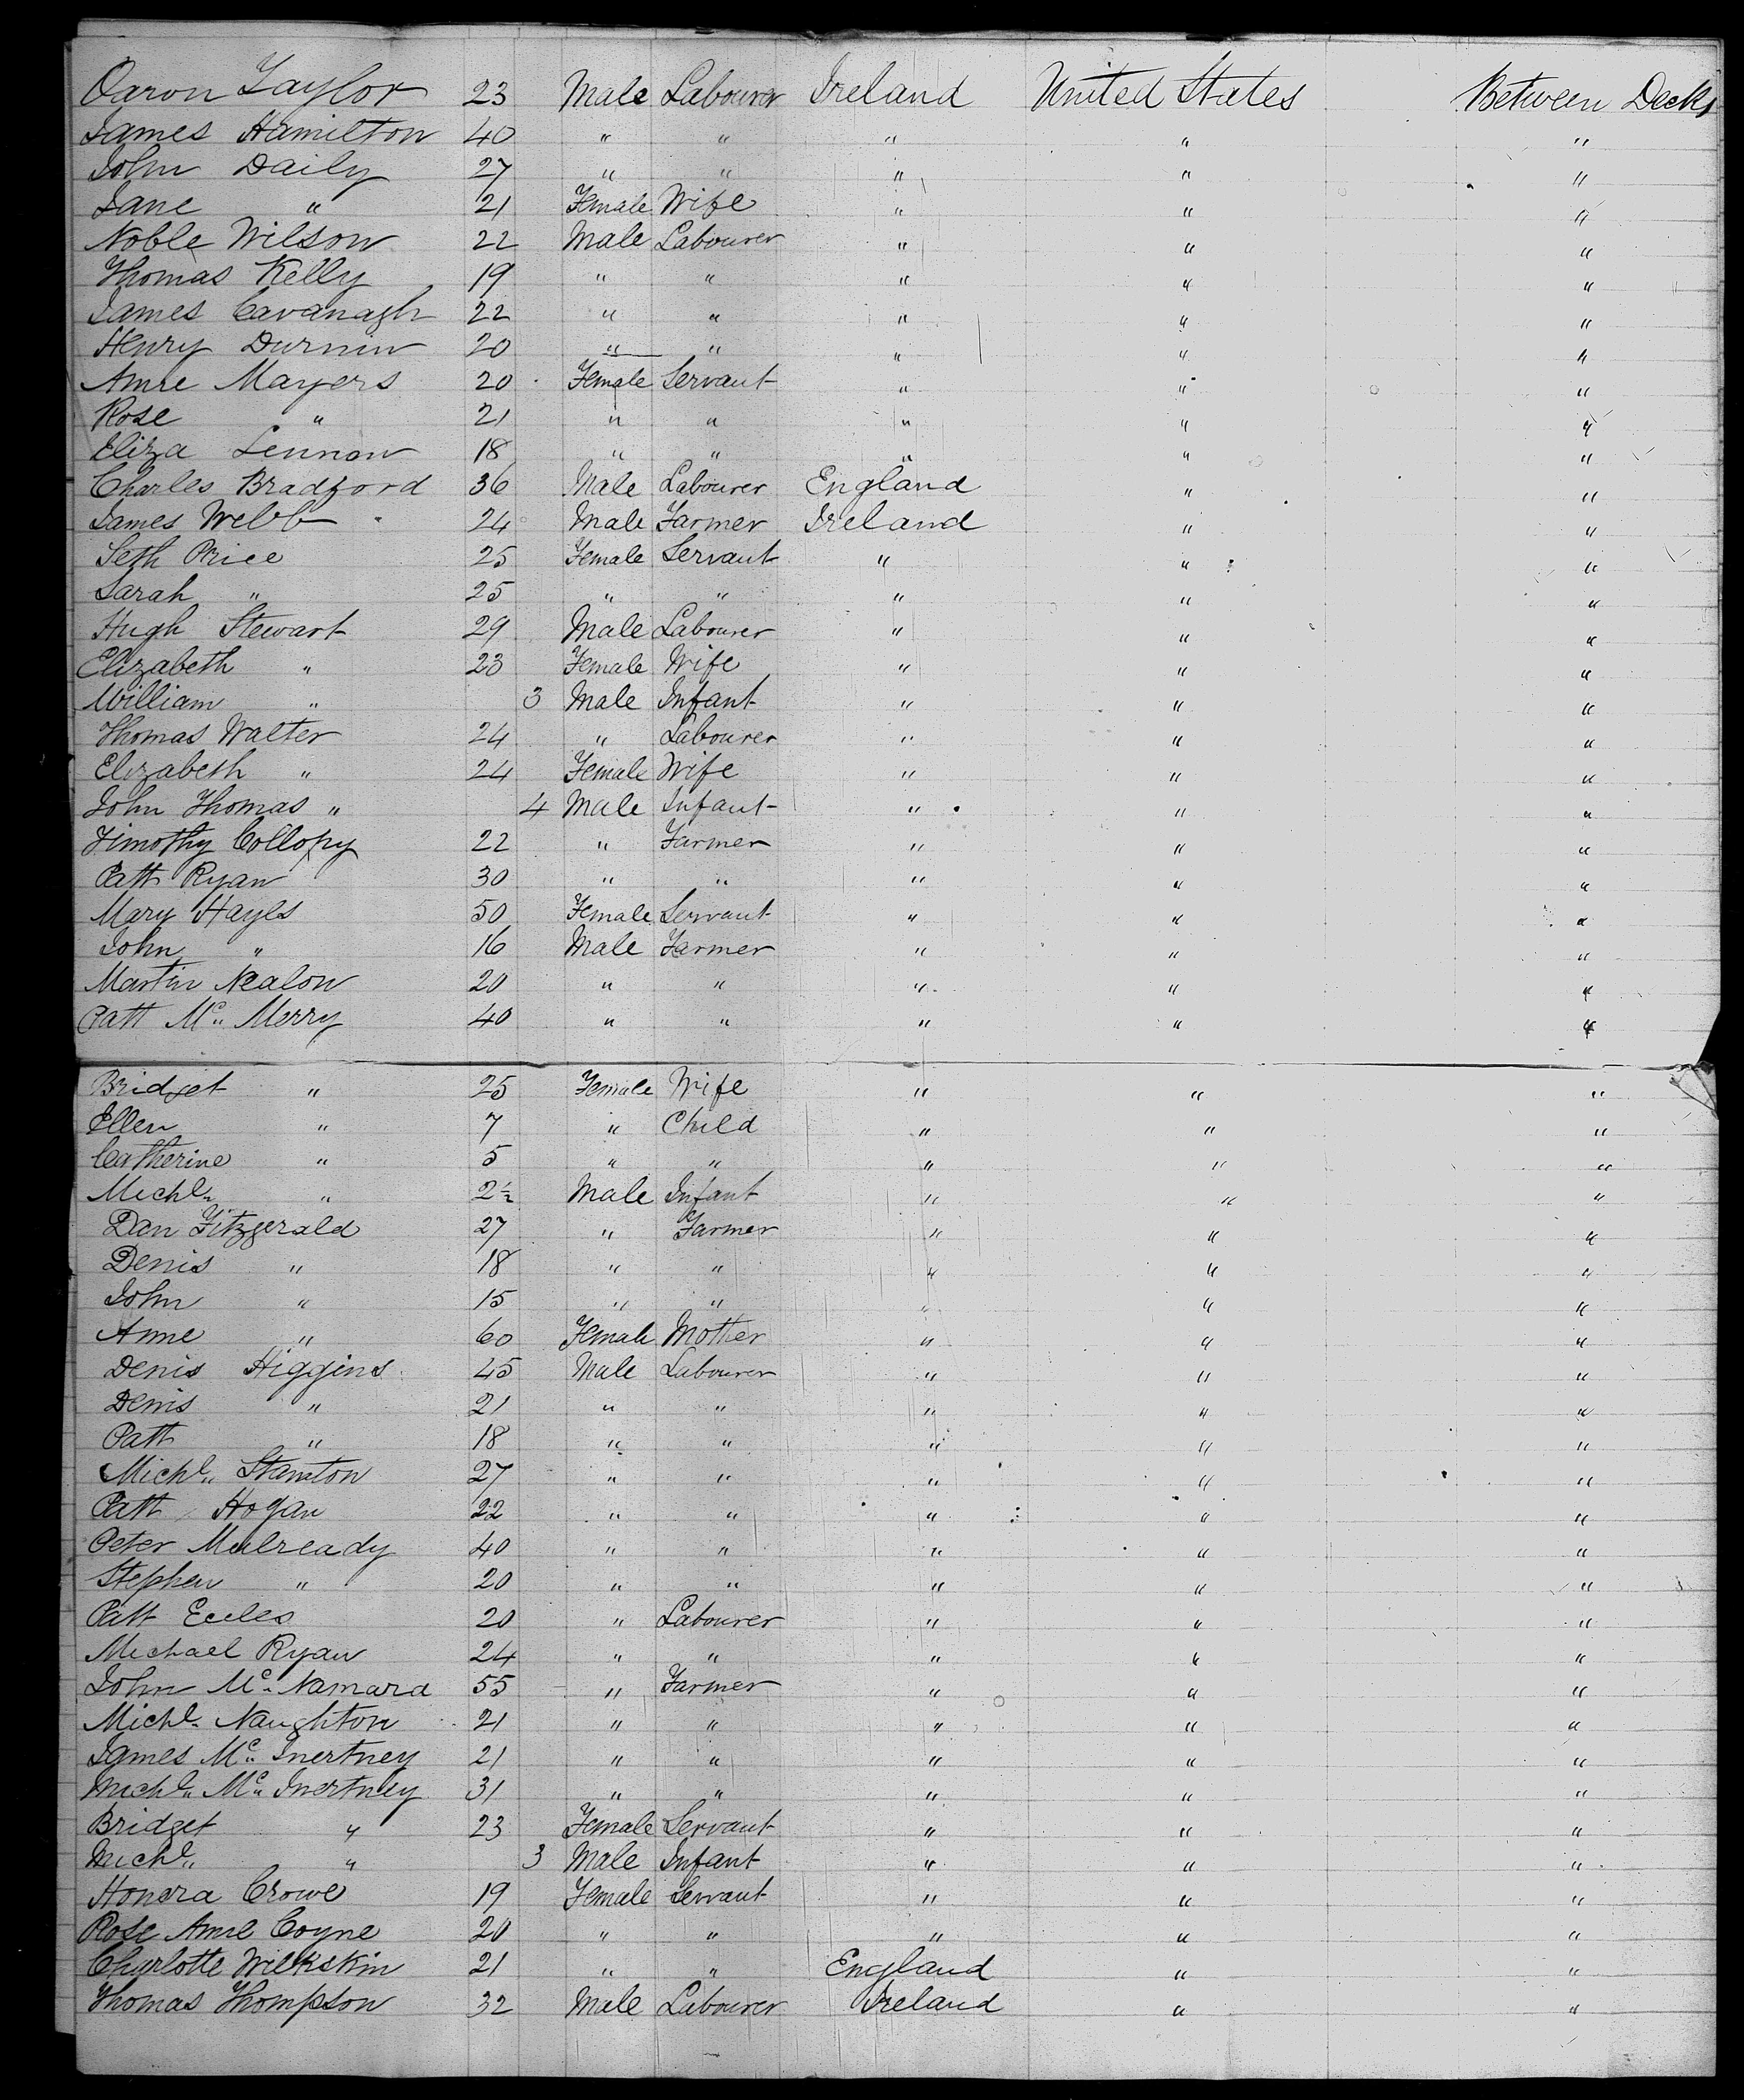 Aaron Taylor 23 Male Labourer Ireland United States Between Decks
James Hamilton 40 " " " " "
John Daily 27 " " " " "
Jane " 21 Female Wife " " "
Noble Wilson 22 Male Labourer " " "
Thomas Kelly 19 " " " " "
James Cavanagh 22 " " " " "
Henry Durnin 20 " " " " "
Anne Mayers 20 Female Servant " " "
Rose " 21 " " " " "
Eliza Lennon 18 " " " " "
Charles Bradford 36 Male Labourer England " "
James Webb 24 Male Farmer Ireland " "
Seth Price 25 Female Servant " " "
Sarah " 25 " " " " "
Hugh Stewart 29 Male Labourer " " "
Elizabeth " 23 Female Wife " " "
William " 3 Male Infant " " "
Thomas Walter 24 " Labourer " " "
Elizabeth " 24 Female Wife " " "
John Thomas " 4 Male Infant " " "
Timothy Collopy 22 " Farmer " " "
Patt Ryan 30 " " " " "
Mary Hayes 50 Female Servant " " "
John " 16 Male Farmer " " "
Martin Nealon 20 " " " " "
Patt Mc. Merry 40 " " " " "
Bridget " 25 Female Wife " " "
Ellen " 7 " Child " " "
Catherine " 5 " " " " "
Michl. " 2½ Male Infant " " "
Dan Fitzgerald 27 " Farmer " " "
Denis " 18 " " " " "
John " 15 " " " " "
Anne " 60 Female Mother " " "
Denis Higgins 45 Male Labourer " " "
Denis " 21 " " " " "
Patt " 18 " " " " "
Michl. Stanton 27 " " " " "
Patt Hogan 22 " " " " "
Peter Mulready 40 " " " " "
Stephen " 20 " " " " "
Patt Eccles 20 " Labourer " " "
Michael Ryan 24 " " " " "
John Mc. Namara 55 " Farmer " " "
Michl. Naughton 21 " " " " "
James Mc. Inertney 21 " " " " "
Michl. Mc. Inertney 31 " " " " "
Bridget " 23 Female Servant " " "
Michl. " 3 Male Infant " " "
Honora Crowe 19 Female Servant " " "
Rose Anne Coyne 20 " " " " "
Charlotte Wilkskin 21 " " England " "
Thomas Thompson 32 Male Labourer Ireland " "